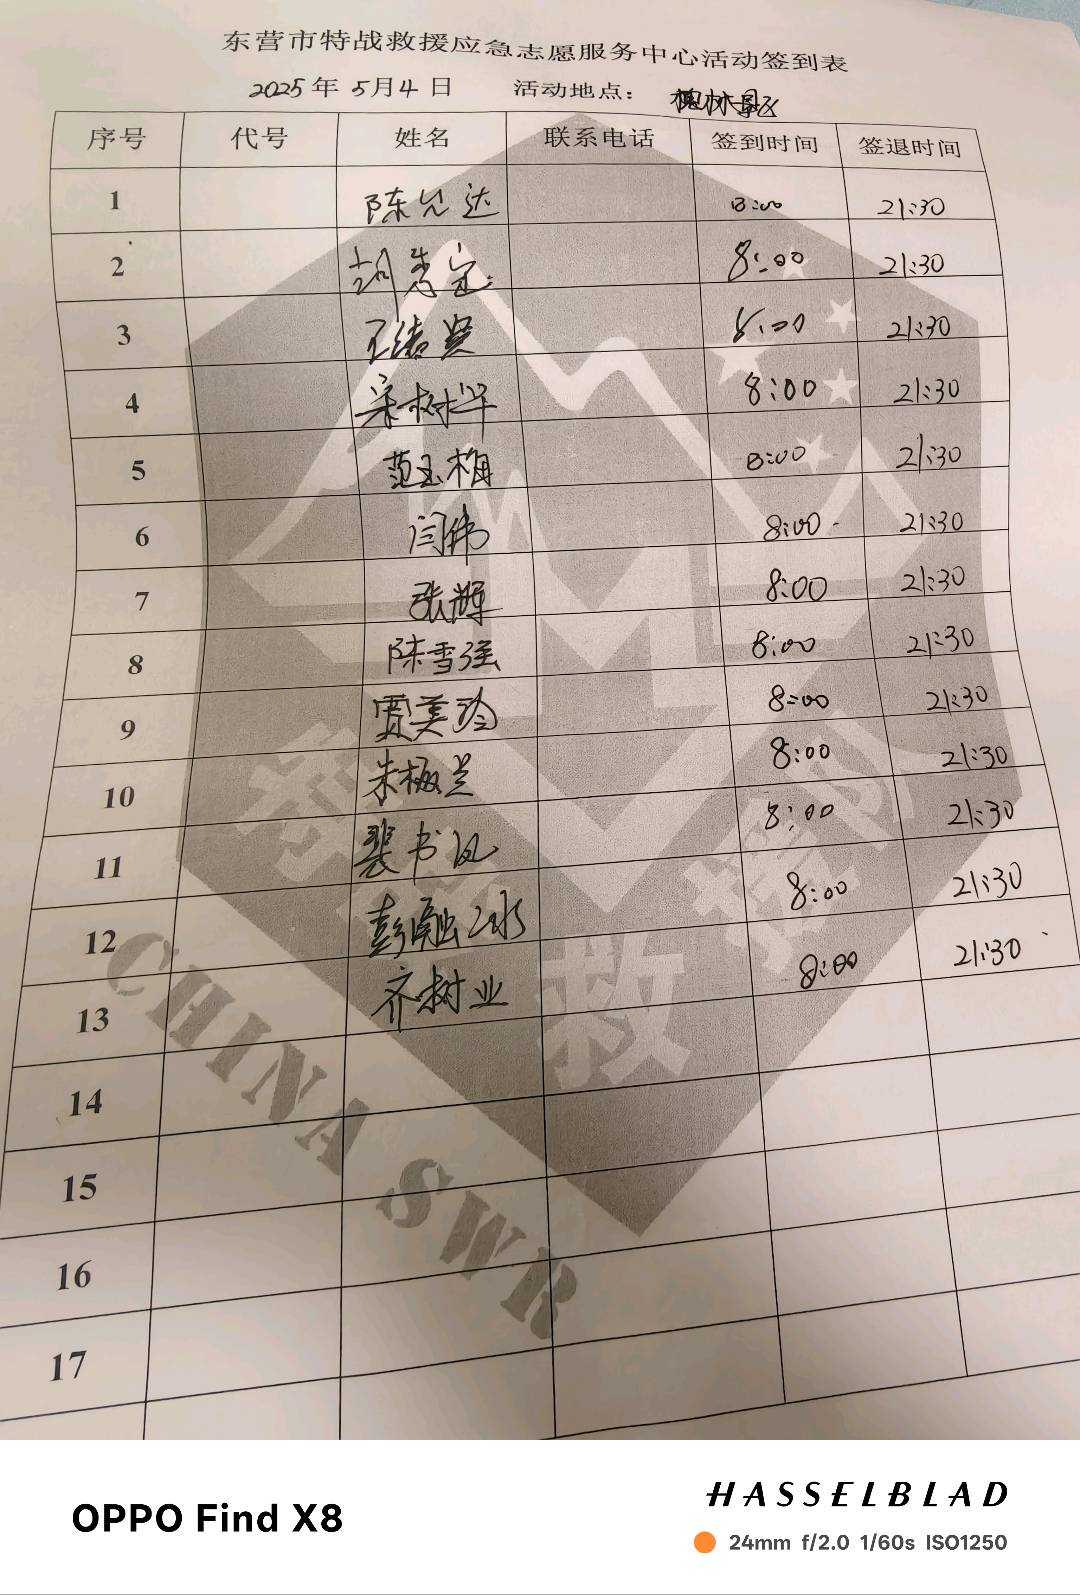 东营市特战救援应急志愿服务中心活动签到表
2025年 5月4日 活动地点： 槐林景区
序号 代号 姓名 联系电话 签到时间 签退时间
1 陈允达 8:00 21:30
2 胡秀定 8:00 21:30
3 王绪贤 8:00 21:30
4 宋树祥 8:00 21:30
5 范玉梅 8:00 21:30
6 闫伟 8:00 21:30
7 张辉 8:00 21:30
8 陈雪强 8:00 21:30
9 贾美玲 8:00 21:30
10 朱极兰 8:00 21:30
11 裴书凤 8:00 21:30
12 彭融冰 8:00 21:30
13 齐树业 8:00 21:30
14
15
16
17
救援队
CHINA SWR
OPPO Find X8
HASSELBLAD
24mm f/2.0 1/60s ISO1250